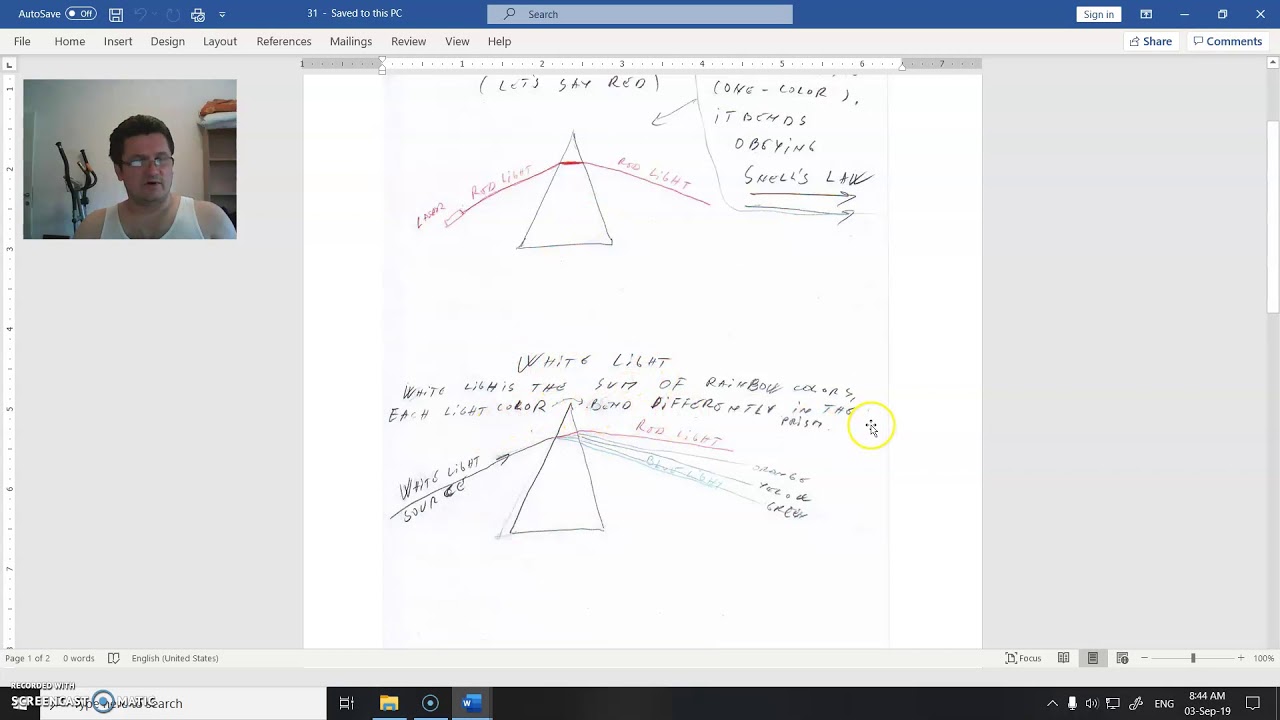 AutoSave Off 31 - Saved to this PC Search Sign in
File Home Insert Design Layout References Mailings Review View Help Share Comments
1 1 2 3 4 5 6 7
(LET'S SAY RED)
(ONE-COLOR),
IT BENDS
OBEYING
SNELL'S LAW
LASER
RED LIGHT
RED LIGHT
WHITE LIGHT
WHITE LIGH IS THE SUM OF RAINBOW COLORS,
EACH LIGHT COLOR BEND DIFFERENTLY IN THE
PRISM.
RED LIGHT
BLUE LIGHT
ORANGE
GREEN
WHITE LIGHT
SOURCE
1
2
3
4
5
6
7
Page 1 of 2 0 words English (United States) Focus 100%
RECORDED WITH
SCREENCAST MATIC
Type here to search
ENG 8:44 AM
03-Sep-19